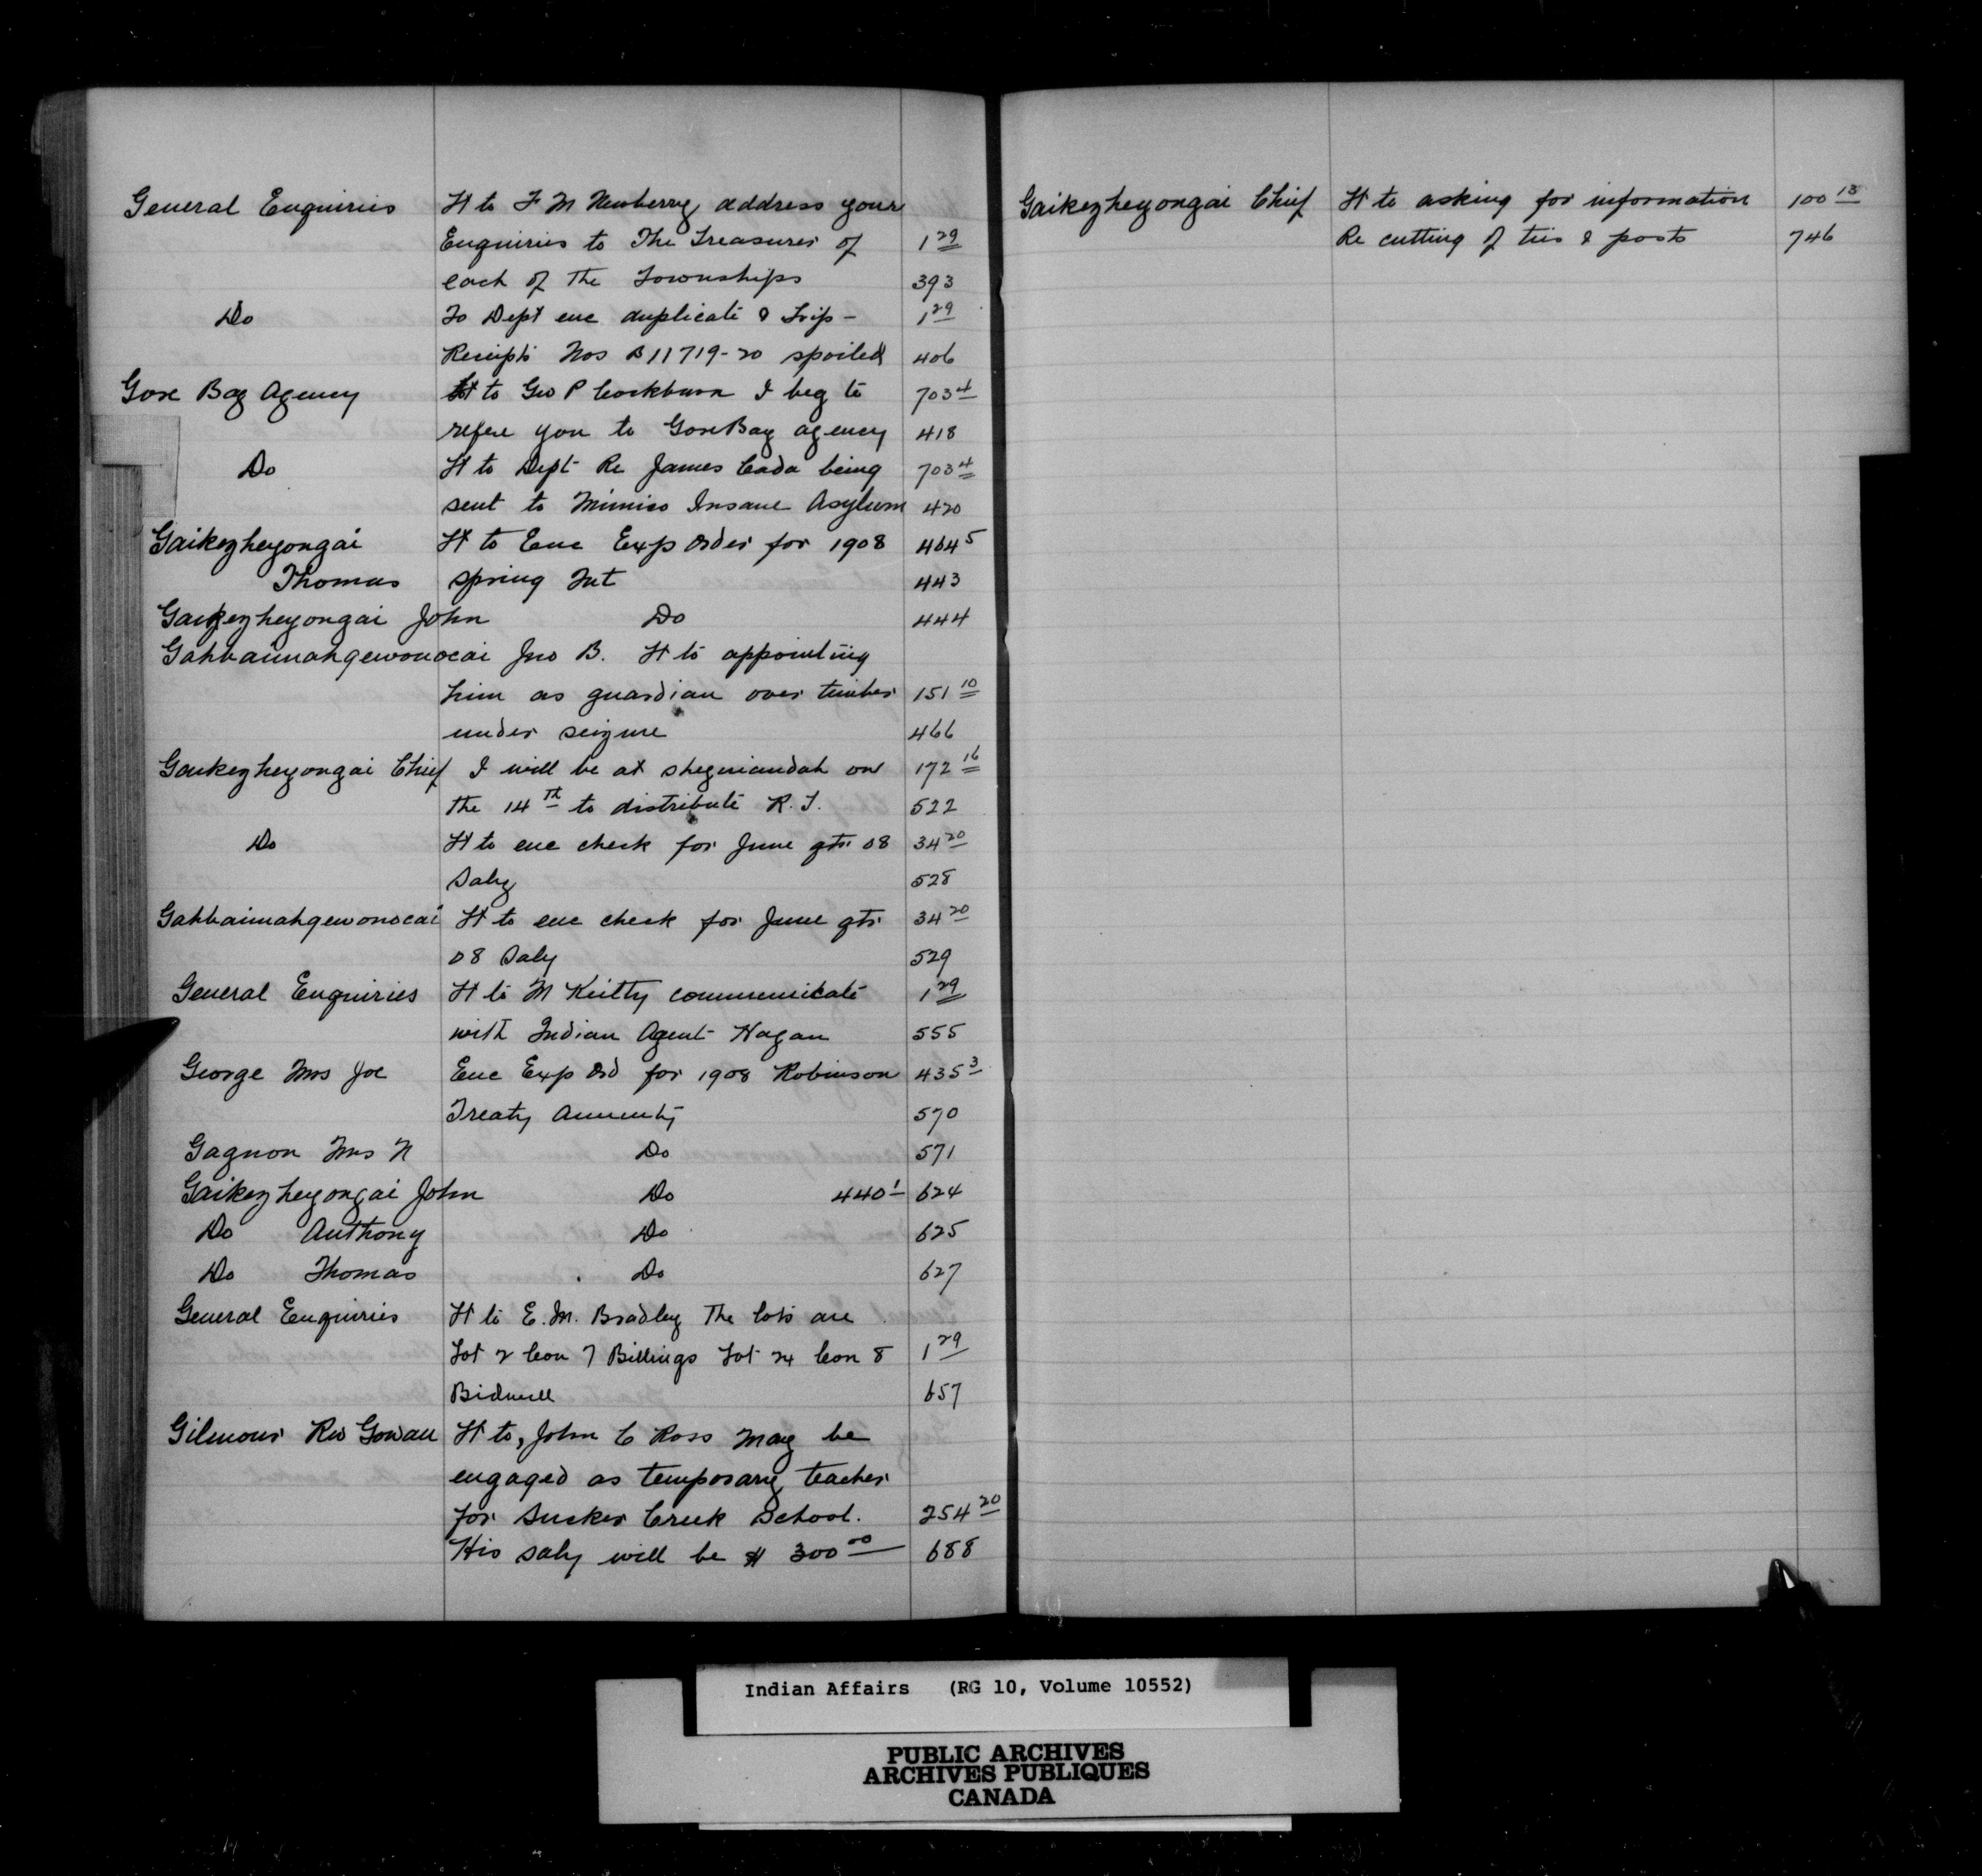 General Enquiries Lt to F M Newberry address your
Enquiries to The Treasurer of 1 29
each of the Townships 393
Do To Dept enc duplicate & Trip - 1 29
Receipts Nos B11719-20 spoiled 406
Gore Bay Agency Lt to Geo P Cockburn I beg to 703 4
refere you to Gore Bay agency 418
Do Lt to Dept Re James Cada being 703 4
sent to Mimico Insane Asylum 420
Gaikezheyongai Lt to Enc Exp Order for 1908 464 5
Thomas spring Int 443
Gaikezheyongai John Do 444
Gahbaimahgewonocai Jno B. Lt to appointing
him as guardian over timber 151 10
under seizure 466
Gaikezheyongai Chief I will be at sheguiandah on 172 16
the 14th to distribute R. T. 522
Do Lt to enc check for June qtr 08 34 20
Saly 528
Gahbaimahgewonocai Lt to enc check for June qtr 34 20
08 Saly 529
General Enquiries Lt to M Keilty communicate 1 29
with Indian Agent Hagan 555
George Mrs Joe Enc Exp Ord for 1908 Robinson 435 3
Treaty Annuity 570
Gagnon Mrs N Do 571
Gaikezheyongai John Do 440 1 624
Do Anthony Do 625
Do Thomas Do 627
General Enquiries Lt to E. M. Bradley The lots are
Lot 2 Con 7 Billings Lot 24 Con 8 1 29
Bidwell 657
Gilmour Rev Gowan Lt to, John C Ross may be
engaged as temporary teacher
for Sucker Creek School. 254 20
His saly will be $ 300 00 688
Gaikezheyongai Chief Lt to asking for information 100 13
Re cutting of ties & posts 746
Indian Affairs (RG 10, Volume 10552)
PUBLIC ARCHIVES
ARCHIVES PUBLIQUES
CANADA